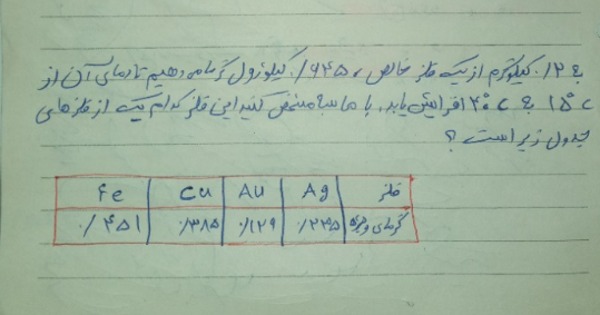 به ۰/۲ کیلوگرم از یک فلز خالص، ۰/۶۴۵ کیلوژول گرما می دهیم تا دمای آن از
۱۵°C به ۴۰°C افزایش یابد. با محاسبه مشخص کنید این فلز کدام یک از فلزهای
جدول زیر است؟
فلز Ag Au Cu Fe
گرمای ویژه ۰/۲۳۵ ۰/۱۲۹ ۰/۳۸۵ ۰/۴۵۱